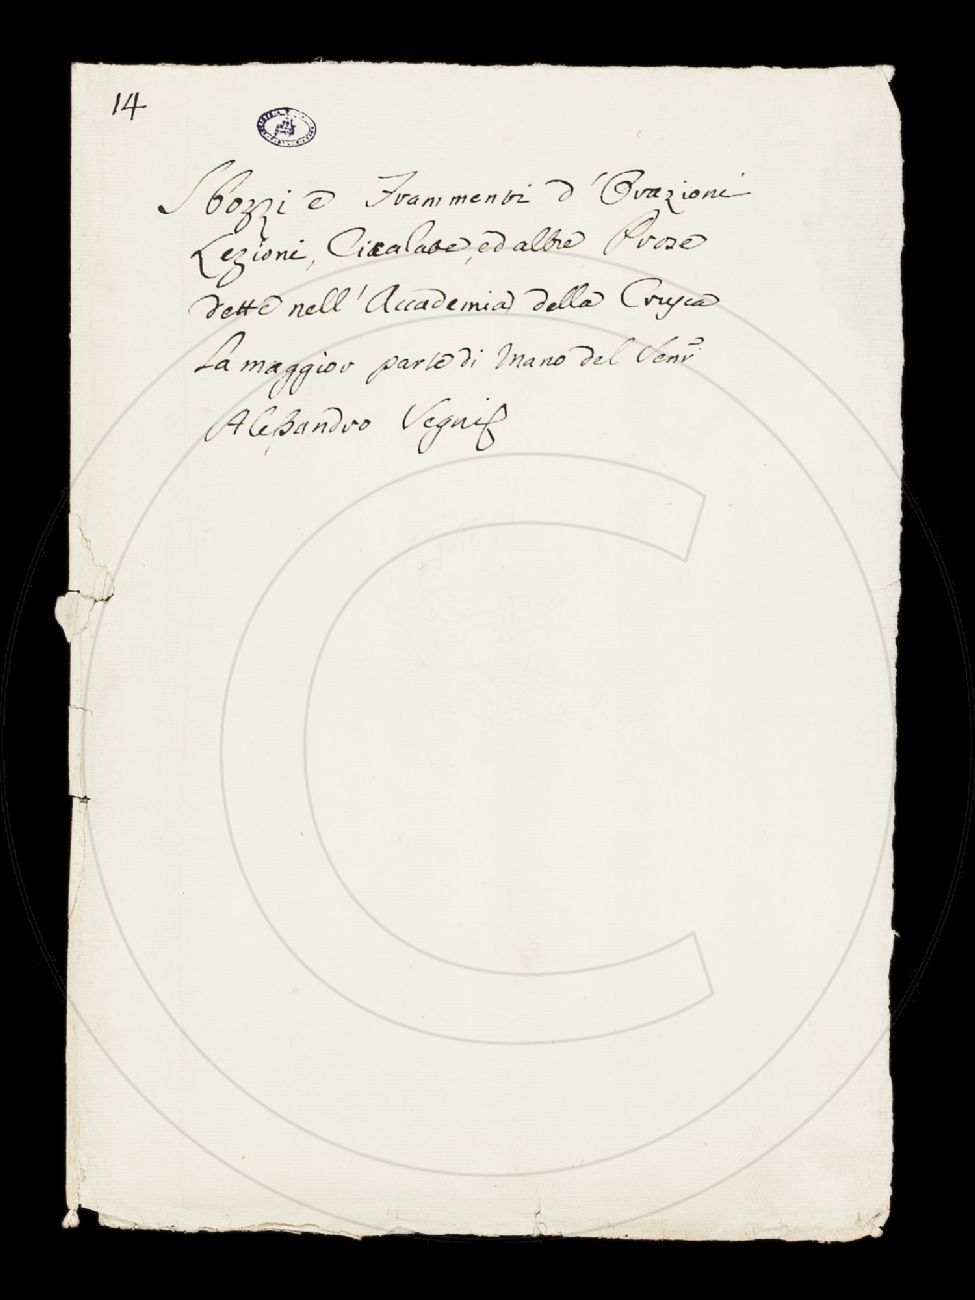 14
Sbozzi e Frammenti d'Orazioni
Lezioni, Cicalate, ed altre Prose
dette nell'Accademia della Crusca
La maggior parte di Mano del Sen.r
Alessandro Segni